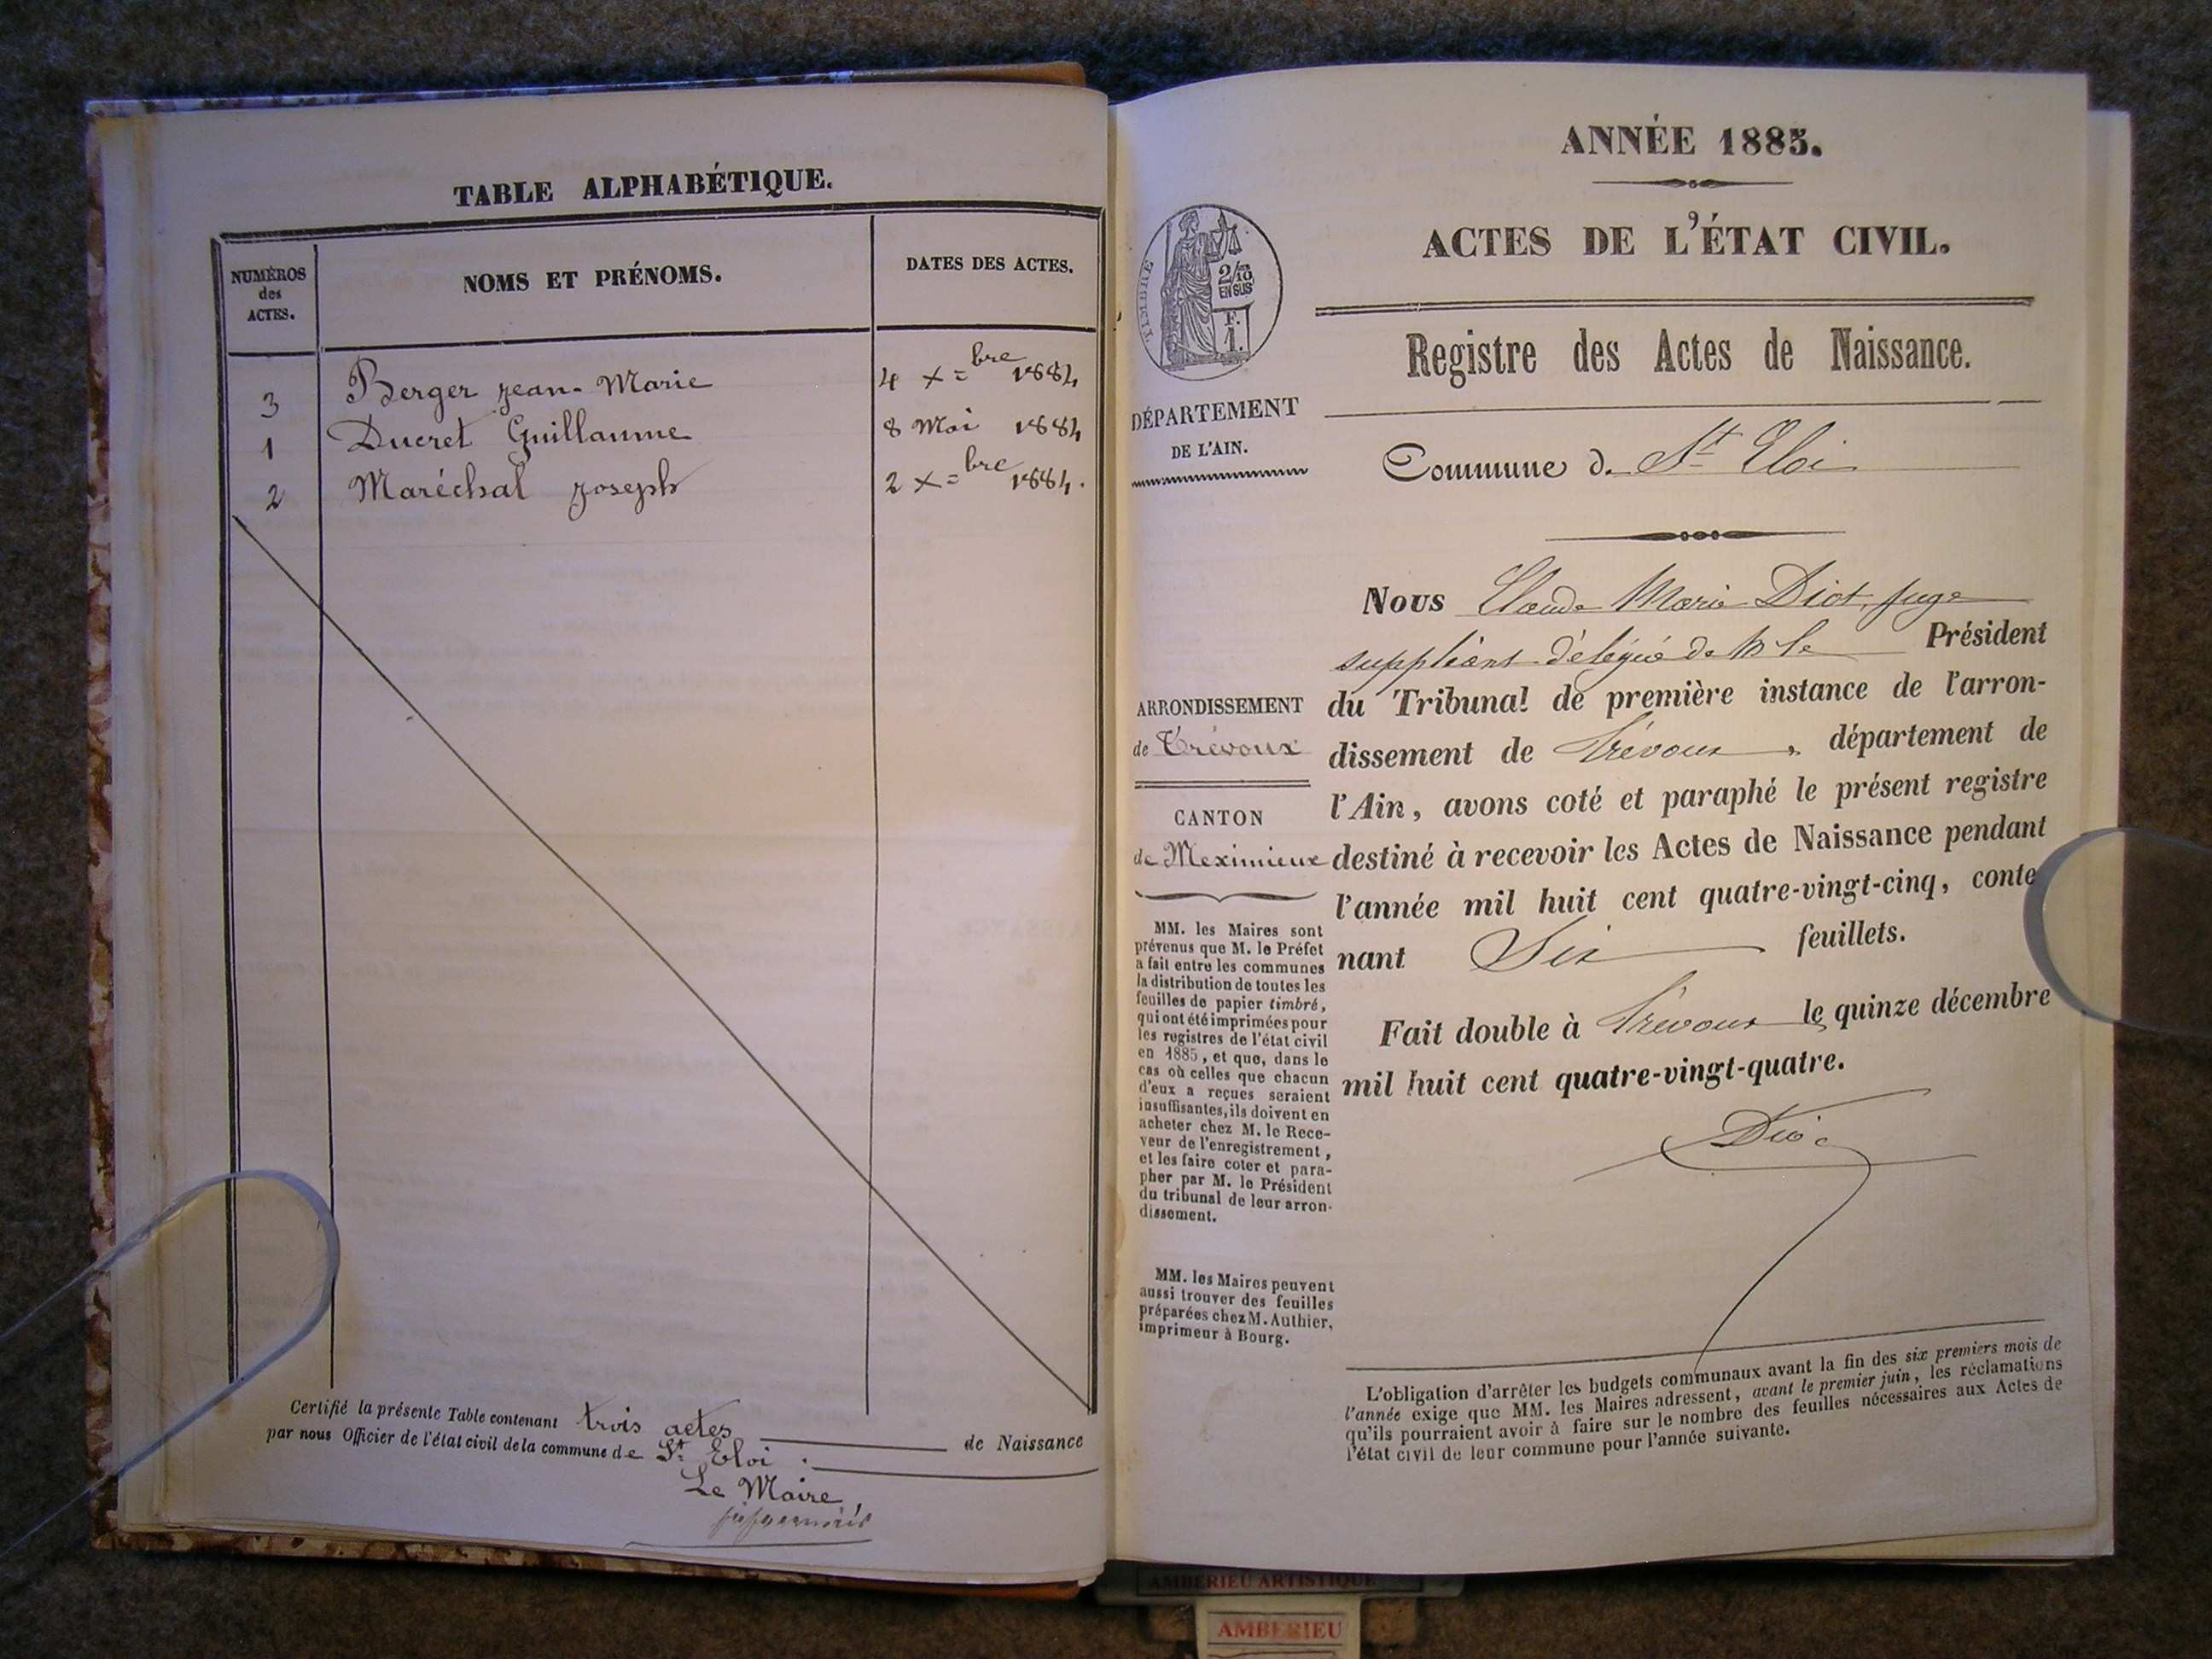 TABLE ALPHABÉTIQUE.
NUMÉROS
des
ACTES.
NOMS ET PRÉNOMS.
DATES DES ACTES.
3 Berger Jean-Marie 4 X=bre 1884
1 Ducret Guillaume 8 Mai 1884
2 Maréchal Joseph 2 X=bre 1884.
Certifié la présente Table contenant trois actes de Naissance
par nous Officier de l'état civil de la commune de St. Eloi.
Le Maire,
ANNÉE 1885.
ACTES DE L'ÉTAT CIVIL.
TIMBRE
2/10
EN SUS
F.
1.
Registre des Actes de Naissance.
DÉPARTEMENT
DE L'AIN.
Commune de St Eloi
Nous Claude Marie Diot, juge
suppléant délégué de M le Président
du Tribunal de première instance de l'arron-
dissement de Trévoux, département de
l'Ain, avons coté et paraphé le présent registre
destiné à recevoir les Actes de Naissance pendant
l'année mil huit cent quatre-vingt-cinq, conte
nant Six feuillets.
Fait double à Trévoux le quinze décembre
mil huit cent quatre-vingt-quatre.
Diot
ARRONDISSEMENT
de Trévoux
CANTON
de Meximieux
MM. les Maires sont
prévenus que M. le Préfet
a fait entre les communes
la distribution de toutes les
feuilles de papier timbré,
qui ont été imprimées pour
les registres de l'état civil
en 1885, et que, dans le
cas où celles que chacun
d'eux a reçues seraient
insuffisantes, ils doivent en
acheter chez M. le Rece-
veur de l'enregistrement,
et les faire coter et para-
pher par M. le Président
du tribunal de leur arron-
dissement.
MM. les Maires peuvent
aussi trouver des feuilles
préparées chez M. Authier,
imprimeur à Bourg.
L'obligation d'arrêter les budgets communaux avant la fin des six premiers mois de
l'année exige que MM. les Maires adressent, avant le premier juin, les réclamations
qu'ils pourraient avoir à faire sur le nombre des feuilles nécessaires aux Actes de
l'état civil de leur commune pour l'année suivante.
AMBERIEU ARTISTIQUE
AMBERIEU